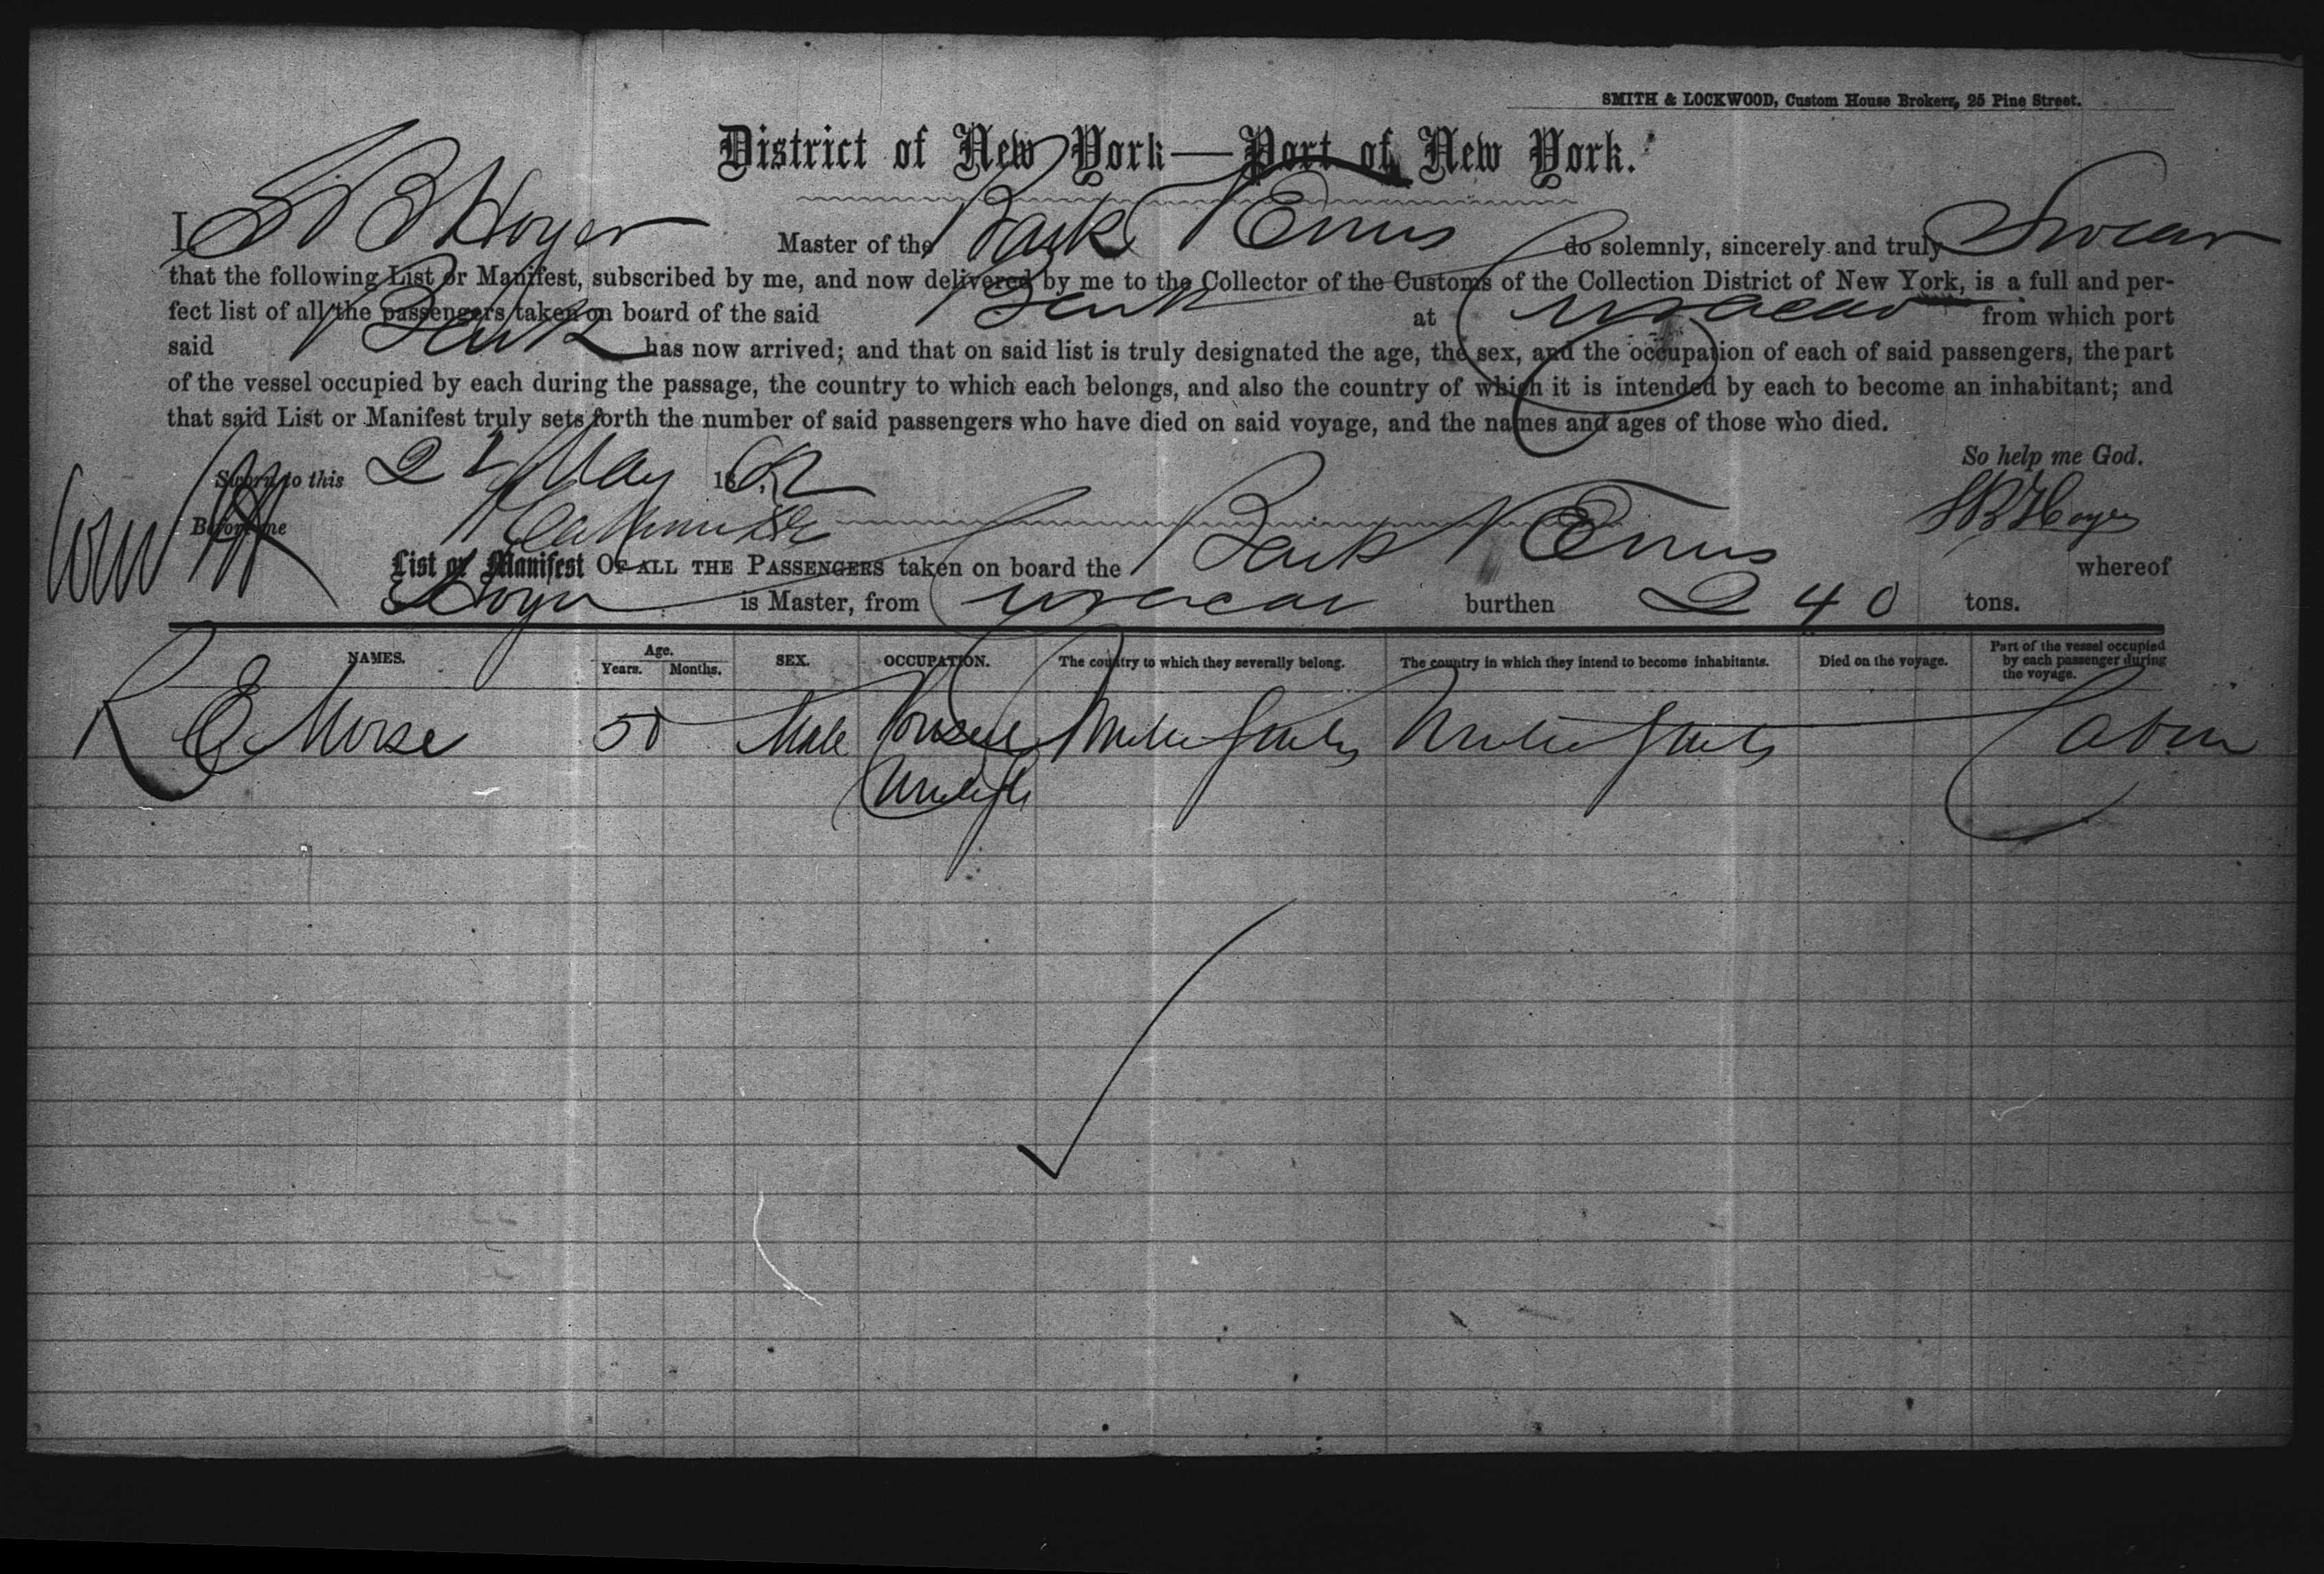 SMITH & LOCKWOOD, Custom House Brokers, 25 Pine Street.
District of New York—Port of New York.
I S B Hoyer Master of the Bark Venus do solemnly, sincerely and truly Swear
that the following List or Manifest, subscribed by me, and now delivered by me to the Collector of the Customs of the Collection District of New York, is a full and per-
fect list of all the passengers taken on board of the said Bark at Curacao from which port
said Bark has now arrived; and that on said list is truly designated the age, the sex, and the occupation of each of said passengers, the part
of the vessel occupied by each during the passage, the country to which each belongs, and also the country of which it is intended by each to become an inhabitant; and
that said List or Manifest truly sets forth the number of said passengers who have died on said voyage, and the names and ages of those who died.
So help me God.
Sworn to this 2 May 18
Before me
S B Hoyer
List or Manifest OF ALL THE PASSENGERS taken on board the Bark Venus whereof
Hoyer is Master, from Curacao burthen 240 tons.
NAMES. Age. Years. Months. SEX. OCCUPATION. The country to which they severally belong. The country in which they intend to become inhabitants. Died on the voyage. Part of the vessel occupied by each passenger during the voyage.
R E Morse 50 Male United States United States Cabin